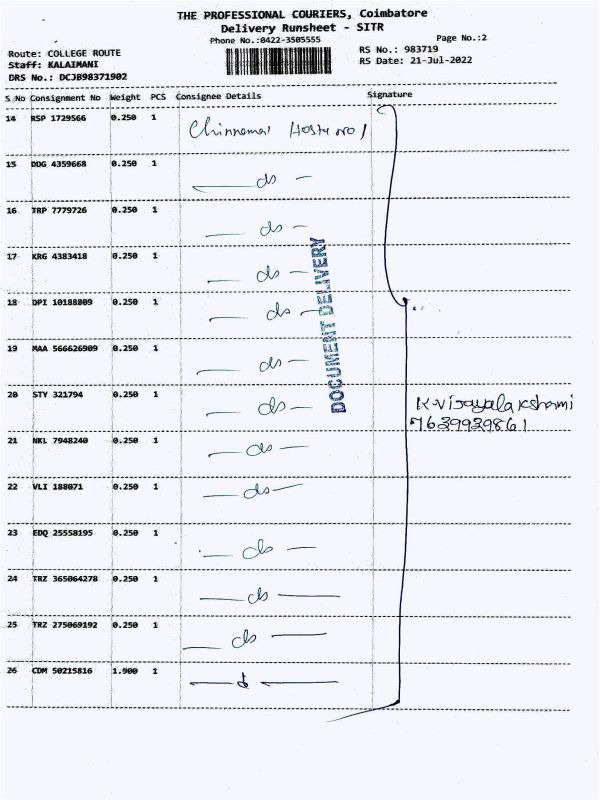 THE PROFESSIONAL COURIERS, Coimbatore
Delivery Runsheet - SITR
Phone No.:0422-3505555
Page No.:2
Route: COLLEGE ROUTE
RS No.: 983719
Staff: KALAIMANI
RS Date: 21-Jul-2022
DRS No.: DCJB98371902
S No Consignment No Weight PCS Consignee Details Signature
14 RSP 1729566 0.250 1
15 DDG 4359668 0.250 1 do
16 TRP 7779726 0.250 1 do
17 KRG 4383418 0.250 1 do
18 DPI 10188809 0.250 1 do
19 MAA 566626909 0.250 1 do
20 STY 321794 0.250 1 do
K.vijayalakshami
7639939861
21 NKL 7948240 0.250 1 do
22 VLI 188071 0.250 1 do
23 EDQ 25558195 0.250 1 do
24 TRZ 365064278 0.250 1 do
25 TRZ 275069192 0.250 1 do
26 CDM 50215816 1.900 1
DOCUMENT DELIVERY